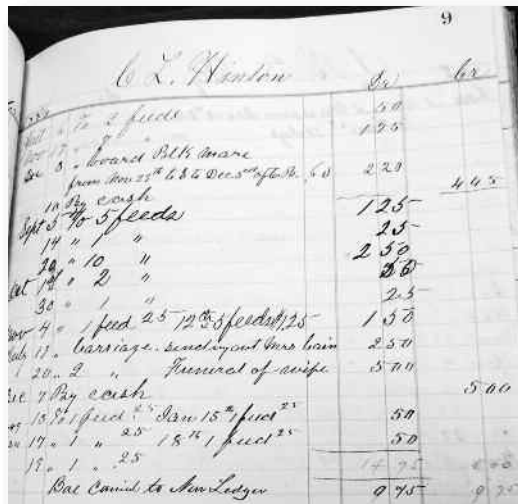 9
C L. Hinton
Dr Cr
Oct 6 To 2 feeds 50
Nov 17 " 7 " 1 75
Dec 8 " board Blk Mare
from Nov 29th to Dec 5th 2 20
10 By cash 4 45
Sept 5 To 5 feeds 1 25
14 " 1 " 25
29 " 10 " 2 50
Oct 19 " 2 " 50
30 " 1 " 25
Nov 4 " 1 feed 25 12th 5 feeds 125 1 50
17 " Carriage sending out Mrs Cain 2 50
20 " 2 " Funeral of wife 5 00
Dec 7 By cash 5 00
15 To 1 feed 25 Jan 15th 1 feed 25 50
17 " 1 " 25 18th 1 feed 25 50
19 " 1 " 25
14 75
Bal Carried to New Ledger 9 75 9 75